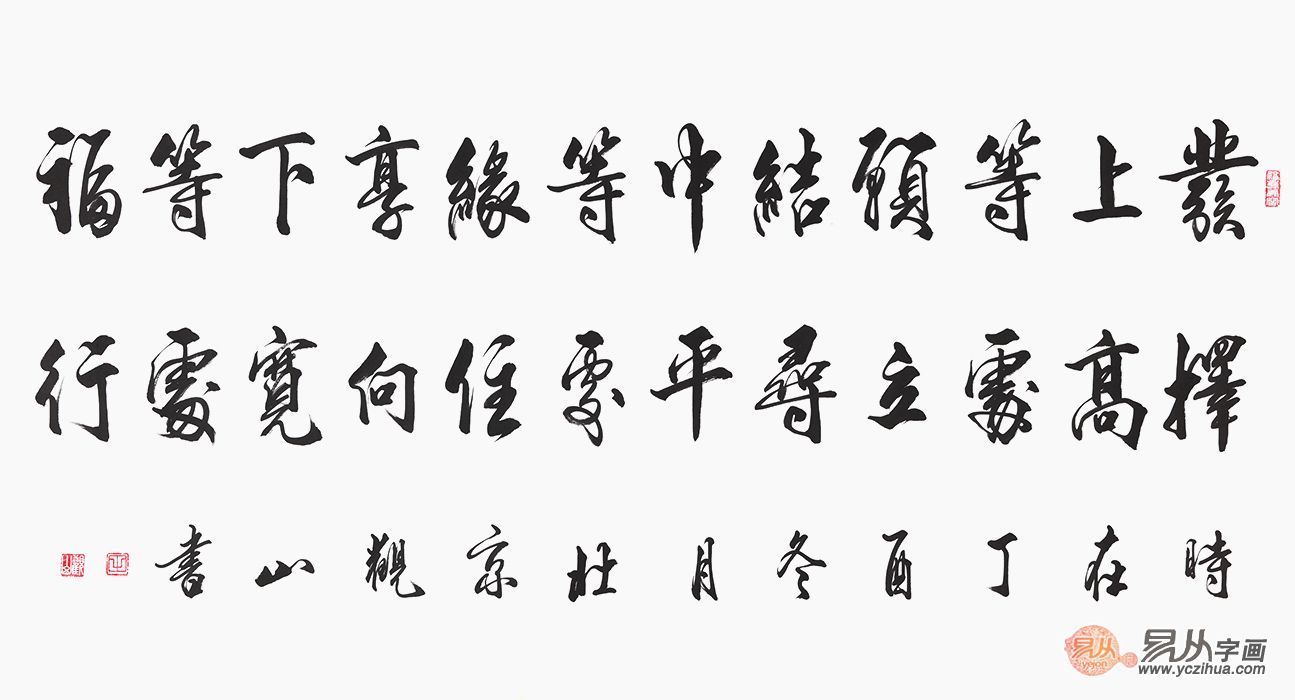 發上等願結中等緣享下等福
擇高處立尋平處住向寬處行
時在丁酉冬月京觀山書
易从字画
www.yczihua.com